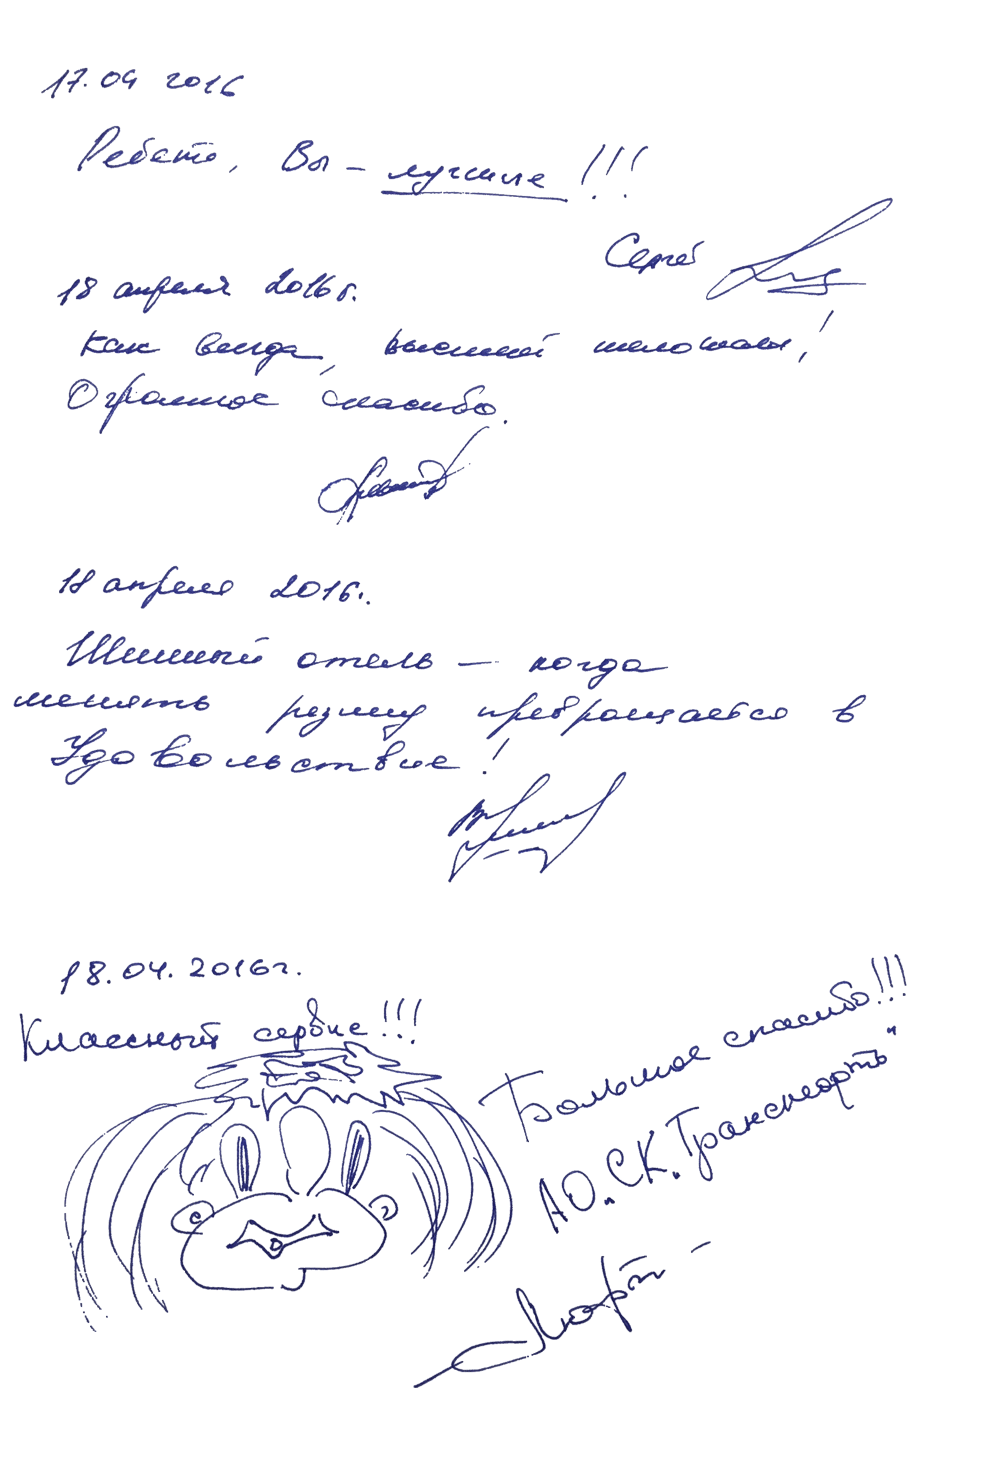 17.04 2016
Ребята, Вы - лучшие!!!
Сергей
18 апреля 2016г.
Как всегда, высший пилотаж!
Огромное спасибо.
18 апреля 2016г.
Шинный отель — когда
менять резину превращается в
Удовольствие!
18.04.2016г.
Классный сервис!!!
Большое спасибо!!!
АО „СК „Транспортъ"